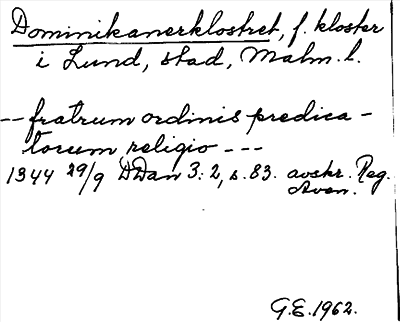 Dominikanerklostret, f. kloster
i Lund, stad, Malm. l.
-- fratrum ordinis predica-
torum religio ---
1344 29/9 DDan 3:2, s. 83. avskr. Reg.
Aven.
G.E. 1962.